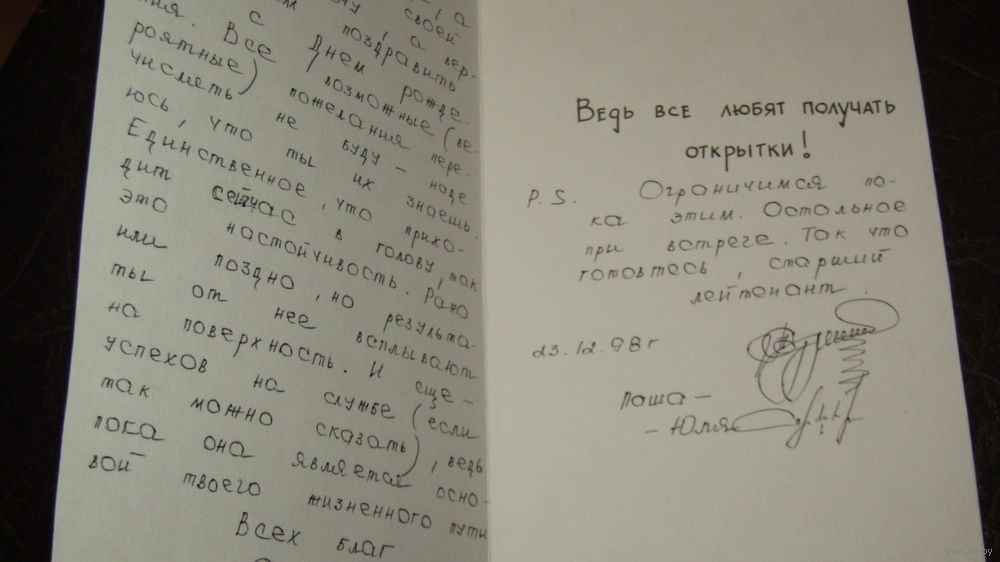 а
своей
, а вер-
с поздравить
ния. Все Днем рожде-
роятные) возможные (ве-
числять пожелания пере-
юсь, что не буду – наде
Единственное, ты их знаешь.
дит сейчас что прихо-
это в голову, так
или настойчивость. Рано
ты поздно, но результа-
на от нее всплывают
успехов поверхность. И еще –
так на службе (если
пока можно сказать), ведь
она является осно-
вой твоего жизненного пути
Всех благ
Ведь все любят получать
открытки!
P.S. Ограничимся по-
ка этим. Остальное
при встрече. Так что
готовтесь, старший
лейтенант.
23.12.98г
Паша –
– Юля